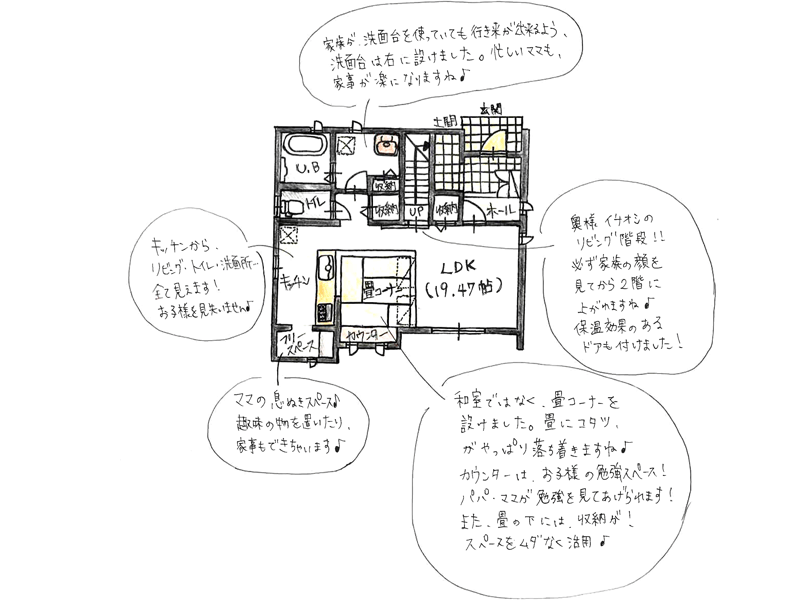 家族が、洗面台を使っていても行き来が出来るよう、
洗面台は右に設けました。忙しいママも、
家事が楽になりますね♪
玄関
土間
U.B
収納
トイレ
収納
UP
収納
ホール
キッチンから、
リビング・トイレ・洗面所…
全て見えます!
お子様を見失いません♪
奥様イチオシの
リビング階段!!
必ず家族の顔を
見てから2階に
上がれますね♪
保温効果のある
ドアも付けました!
キッチン
畳コーナー
LDK
(19.47帖)
カウンター
フリー
スペース
ママの息ぬきスペース♪
趣味の物を置いたり、
家事もできちゃいます♪
和室ではなく、畳コーナーを
設けました。畳にコタツ、
がやっぱり落ち着きますね♪
カウンターは、お子様の勉強スペース!
パパ・ママが勉強を見てあげられます!
また、畳の下には、収納が!
スペースをムダなく活用♪